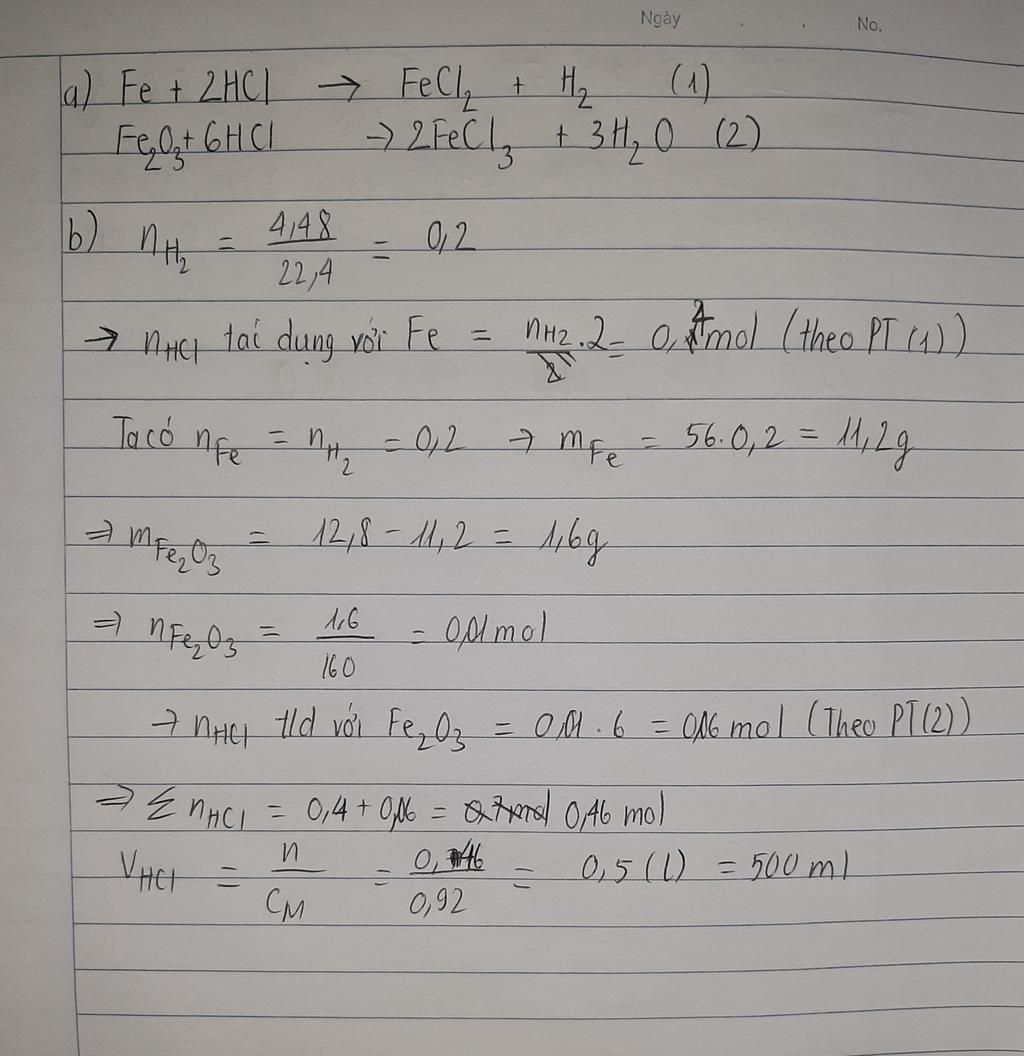 Ngày . . No.
a) Fe + 2HCl → FeCl₂ + H₂ (1)
Fe₂O₃ + 6HCl → 2FeCl₃ + 3H₂O (2)
b) n_H₂ = 4,48 / 22,4 = 0,2
→ n_HCl tác dụng với Fe = n_H2 . 2 = 0,4 mol (theo PT (1))
Ta có n_Fe = n_H₂ = 0,2 → m_Fe = 56. 0,2 = 11,2g
⇒ m_Fe₂O₃ = 12,8 - 11,2 = 1,6g
⇒ n_Fe₂O₃ = 1,6 / 160 = 0,01 mol
→ n_HCl t/d với Fe₂O₃ = 0,01 . 6 = 0,06 mol (Theo PT(2))
⇒ Σ n_HCl = 0,4 + 0,06 = 0,46 mol
V_HCl = n / C_M = 0,46 / 0,92 = 0,5 (l) = 500 ml